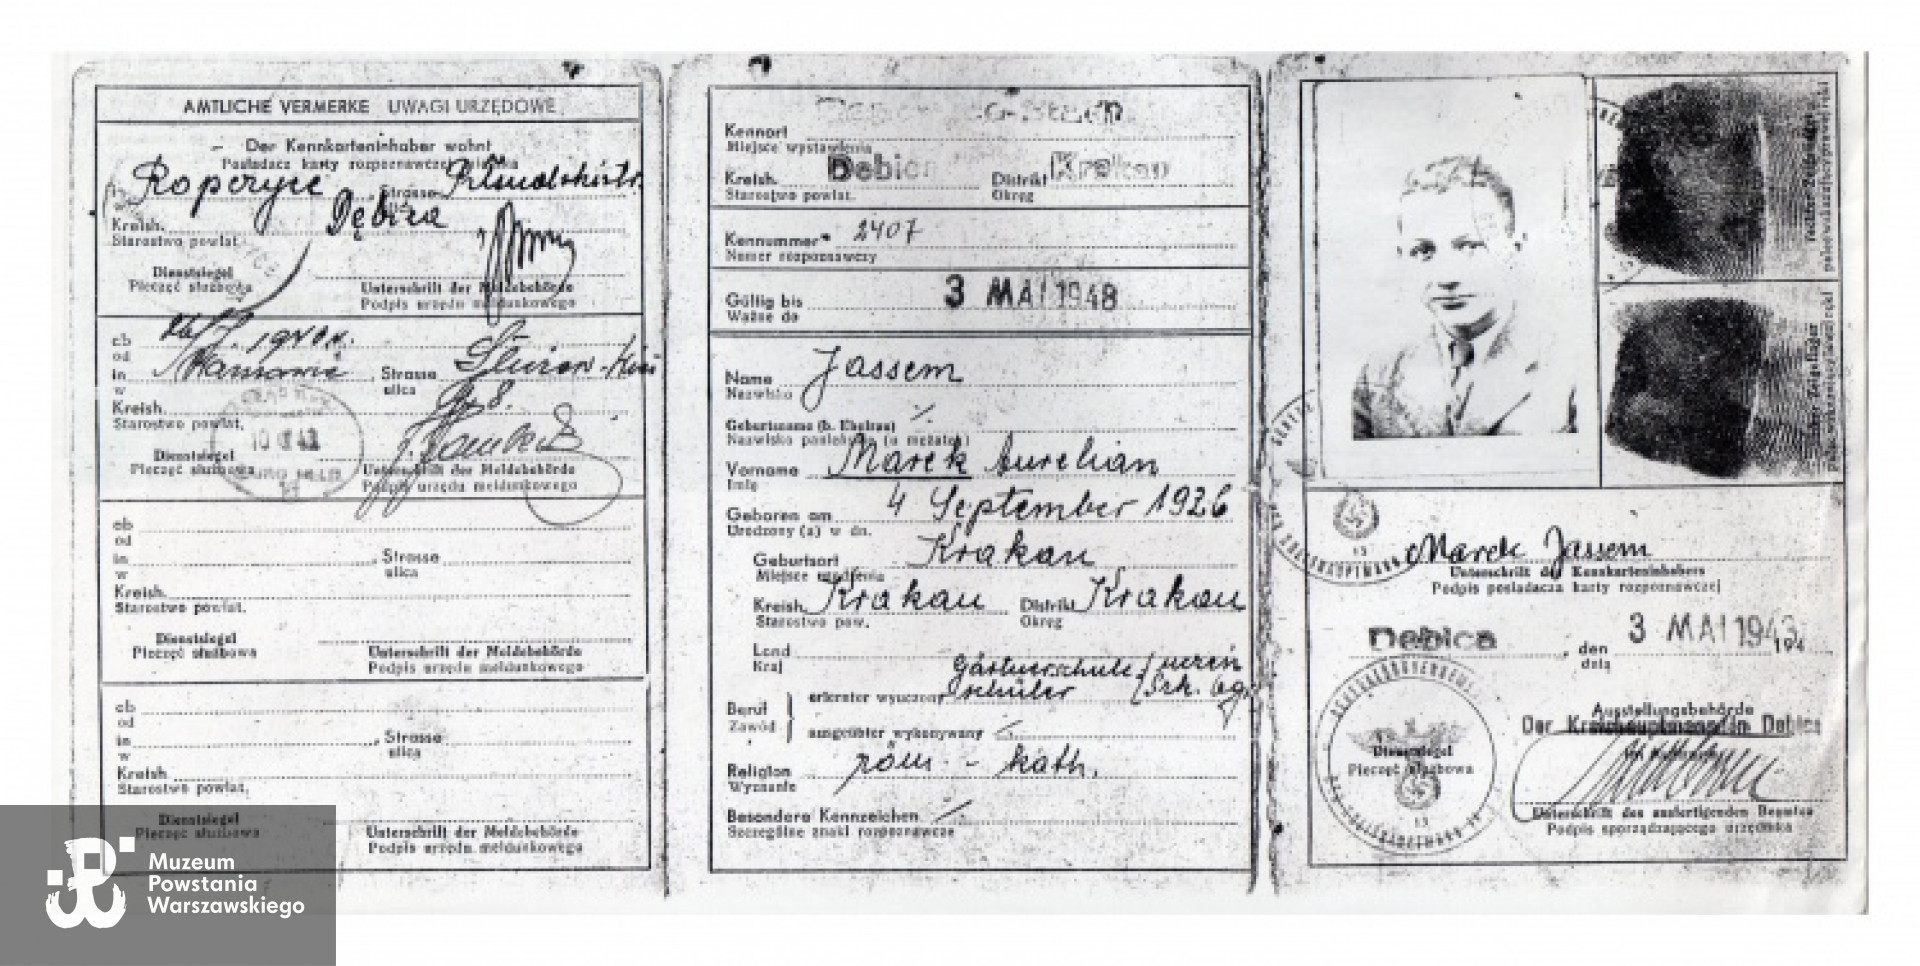 AMTLICHE VERMERKE UWAGI URZĘDOWE
Der Kennkarteninhaber wohnt
Posiadacz karty rozpoznawczej
Ropczyce Strasse
Kreish. Dębica
Starostwo powiat.
Dienstsiegel Unterschrift der Meldebehörde
Pieczęć służbowa Podpis urzędu meldunkowego
ab
od
in Strasse
w ulica
Kreish. 8.
Starostwo powiat.
Dienstsiegel Unterschrift der Meldebehörde
Pieczęć służbowa Podpis urzędu meldunkowego
ab
od
in , Strasse
w ulica
Kreish.
Starostwo powiat.
Dienstsiegel Unterschrift der Meldebehörde
Pieczęć służbowa Podpis urzędu meldunkowego
ab
od
in , Strasse
w ulica
Kreish.
Starostwo powiat.
Dienstsiegel Unterschrift der Meldebehörde
Pieczęć służbowa Podpis urzędu meldunkowego
Muzeum
Powstania
Warszawskiego
Kennort
Miejsce wystawienia
Kreish. Debica Distrikt Krakau
Starostwo powiat. Okręg
Kennummer 2407
Numer rozpoznawczy
Gültig bis 3 MAI 1948
Ważne do
Name Jassem
Nazwisko
Geburtsname (b. Ehefrau)
Nazwisko panieńskie (u mężatek)
Vorname Marek Aurelian
Imię
Geboren am 4 September 1926
Urodzony (a) w dn.
Geburtsort Krakau
Miejsce urodzenia
Kreish. Krakau Distrikt Krakau
Starostwo pow. Okręg
Land
Kraj
Gärtnerschule
Beruf erlernter wyuczony schüler
Zawód ausgeübter wykonywany
Religion röm - kath.
Wyznanie
Besondere Kennzeichen
Szczególne znaki rozpoznawcze
Marek Jassem
Unterschrift des Kennkarteninhabers
Podpis posiadacza karty rozpoznawczej
Debica, den 3 MAI 1943 194
dnia
Ausstellungsbehörde
Der Kreishauptmann in Debica
Dienstsiegel
Pieczęć służbowa
Unterschrift des ausfertigenden Beamten
Podpis sporządzającego urzędnika